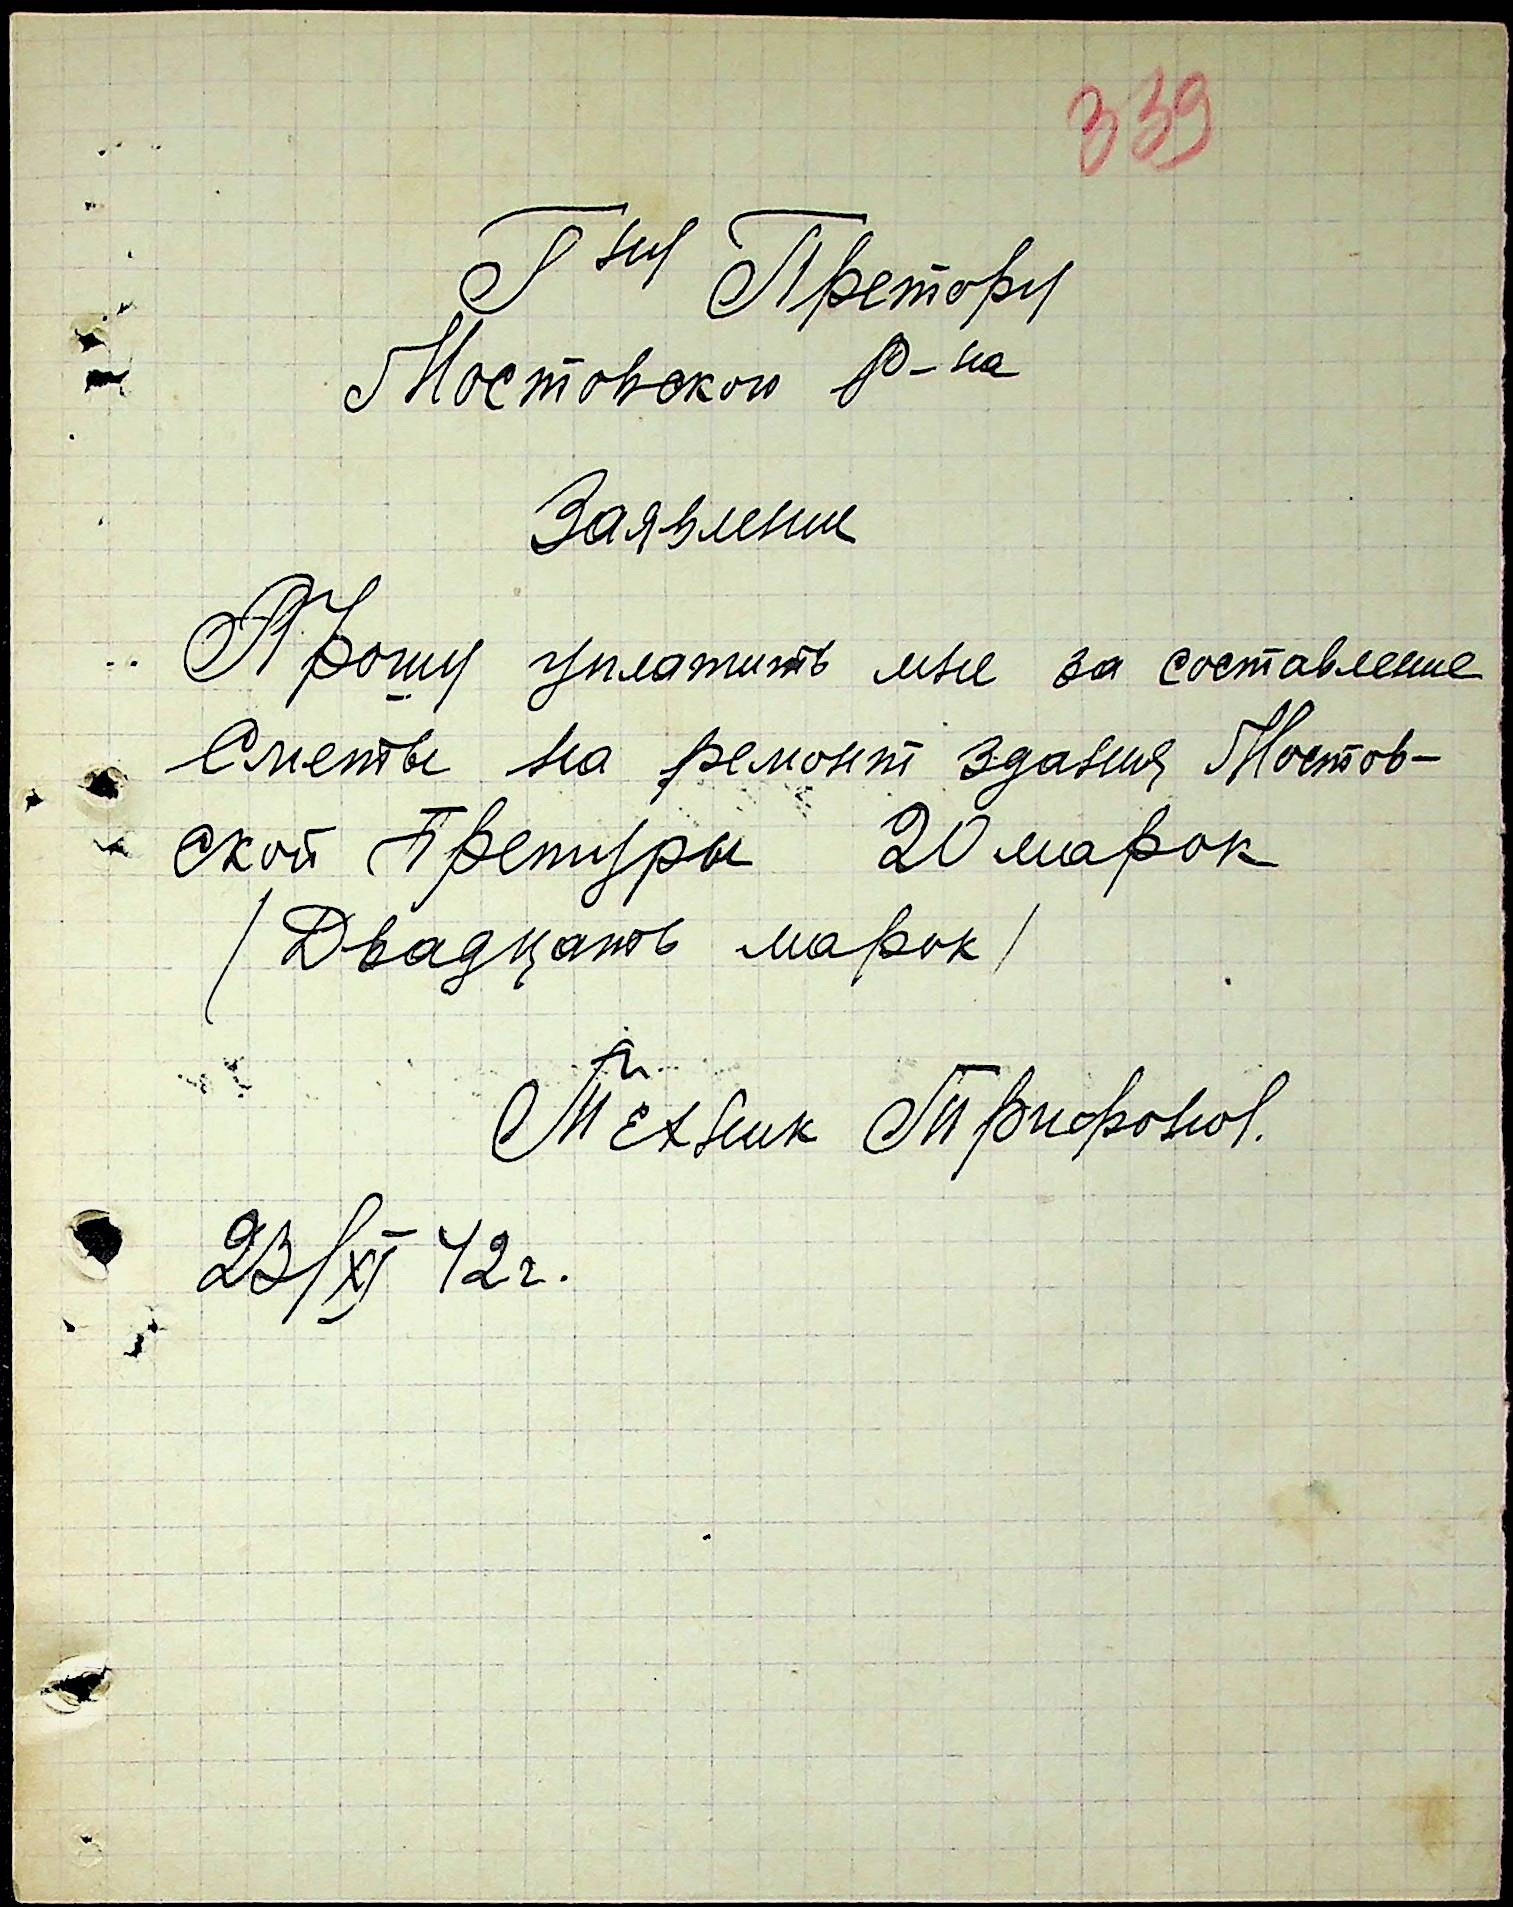 339
Гну Претору
Мостовского р-на
Заявление
Прошу уплатить мне за составление
Сметы на ремонт здания Мостов-
ской Претуры 20 марок
/Двадцать марок/
Техник Трифонов.
23/XI 42 г.